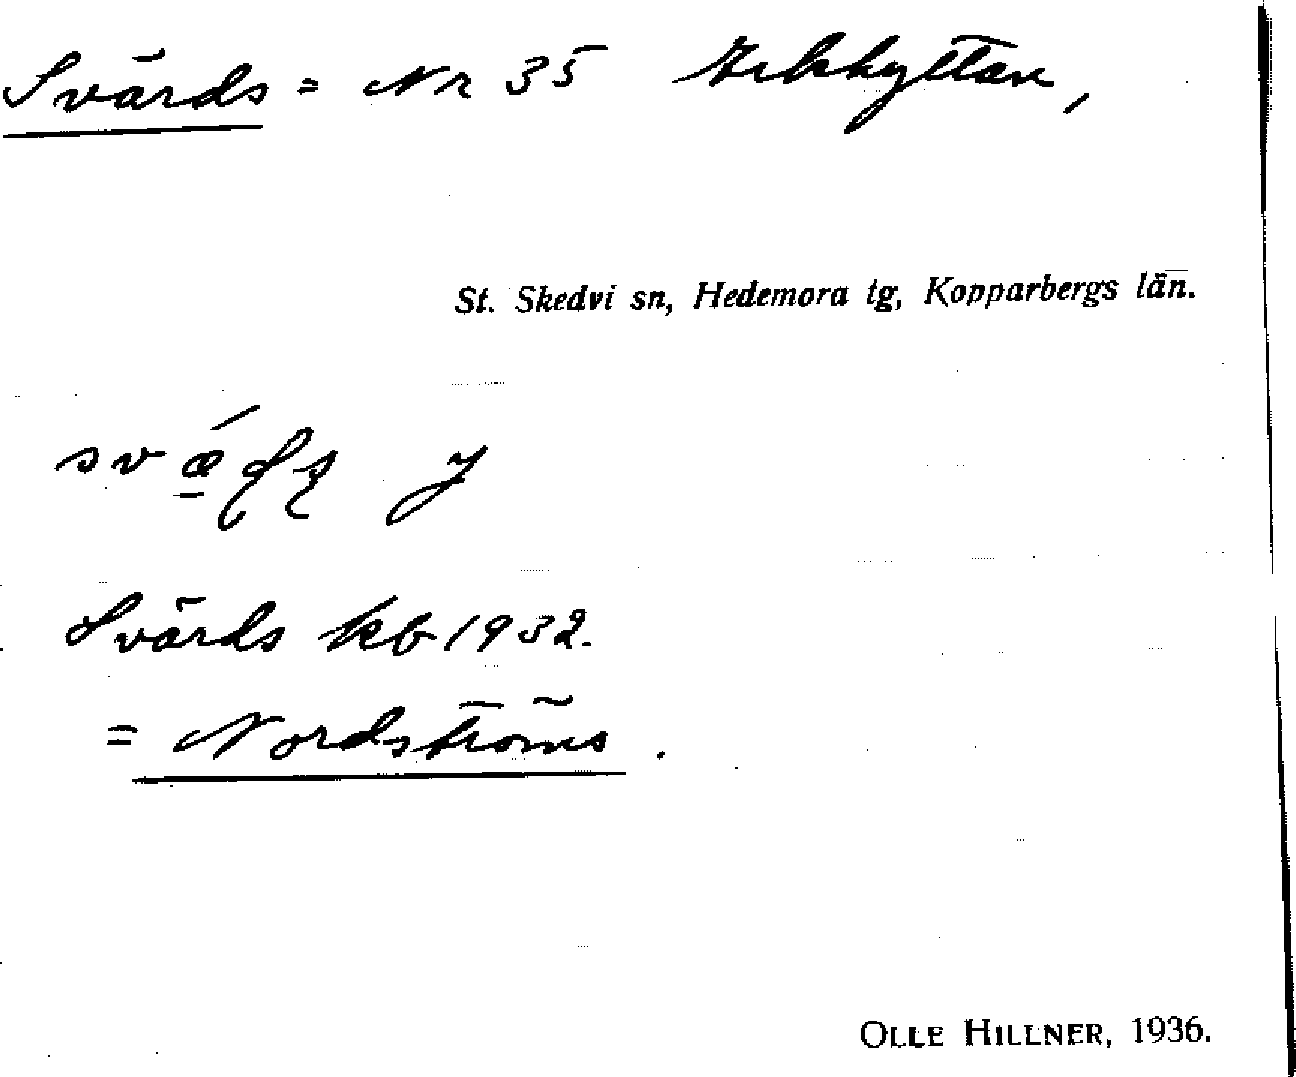 Svärds = Nr 35 Arkhyttan,
St. Skedvi sn, Hedemora tg, Kopparbergs län.
Svärds kb 1932.
= Nordströms.
OLLE HILLNER, 1936.